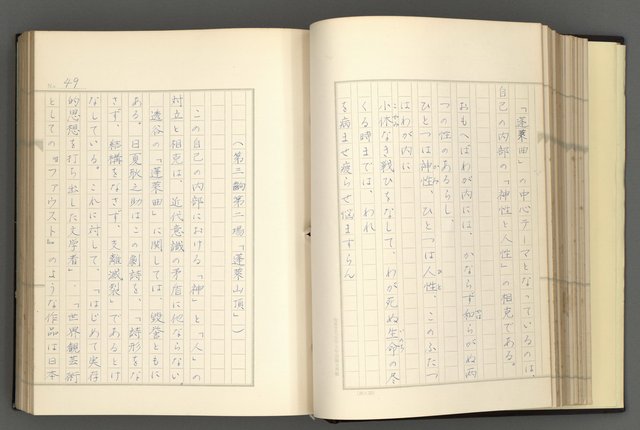 「蓬莱曲」の中心テーマとなっているのは、
自己の内部の「神性と人性」の相克である。
おもへばわが内には、かならず和らがぬ両
つの性のあるらし、
ひとつは神性、ひとつは人性、このふたつ
はわが内に
小休なき戦ひをなして、わが死ぬ生命の尽
くる時までは、われ
を病ませ疲らせ悩ますらん
(第三齣第二場「蓬莱山頂」)
この自己の内部における「神」と「人」の
対立と相克は、近代意識の矛盾に他ならない。
透谷の「蓬莱曲」に関しては、毀誉ともに
ある。日夏耿之助はこの劇詩を、「詩形をな
さず、結構をなさず、支離滅裂」であるとけ
なしている。これに対して、「はじめて実存
的思想を打ち出した文学者」、「世界観芸術
としての『ファウスト』のような作品は日本
No. 49